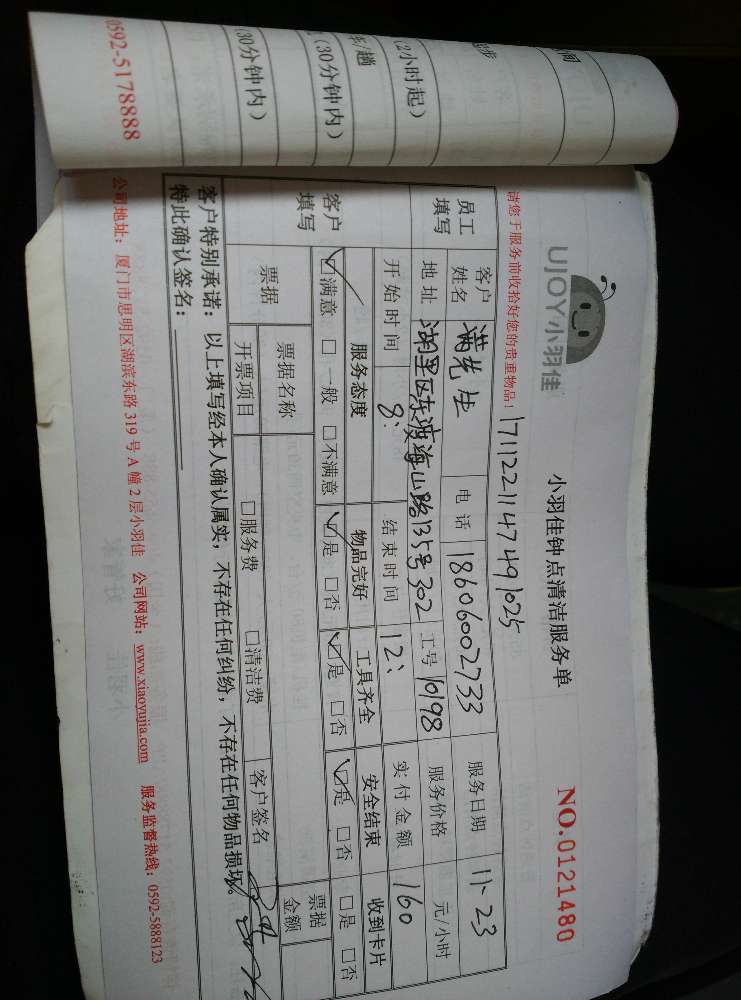 间
步
(2小时起)
车/趟
(30分钟内)
30分钟内)
0592-5178888
UJOY小羽佳
小羽佳钟点清洁服务单
NO.0121480
请您于服务前收拾好您的贵重物品!
1711221147491025
员工填写 客户姓名 满先生 电话 18606002733 服务日期 11、23
地址 湖里区东渡海山路135号302 工号 10198 服务价格 元/小时
开始时间 8: 结束时间 12: 实付金额 160
客户填写 服务态度 物品完好 工具齐全 安全结束 收到卡片
☑满意 □一般 □不满意 ☑是 □否 ☑是 □否 ☑是 □否 □是 □否
票据 票据名称 票据金额
开票项目 □服务费 □清洁费 客户签名
客户特别承诺:以上填写经本人确认属实,不存在任何纠纷,不存在任何物品损坏。
特此确认签名:
公司地址:厦门市思明区湖滨东路319号A幢2层小羽佳 公司网站:www.xiaoyujia.com 服务监督热线:0592-5888123